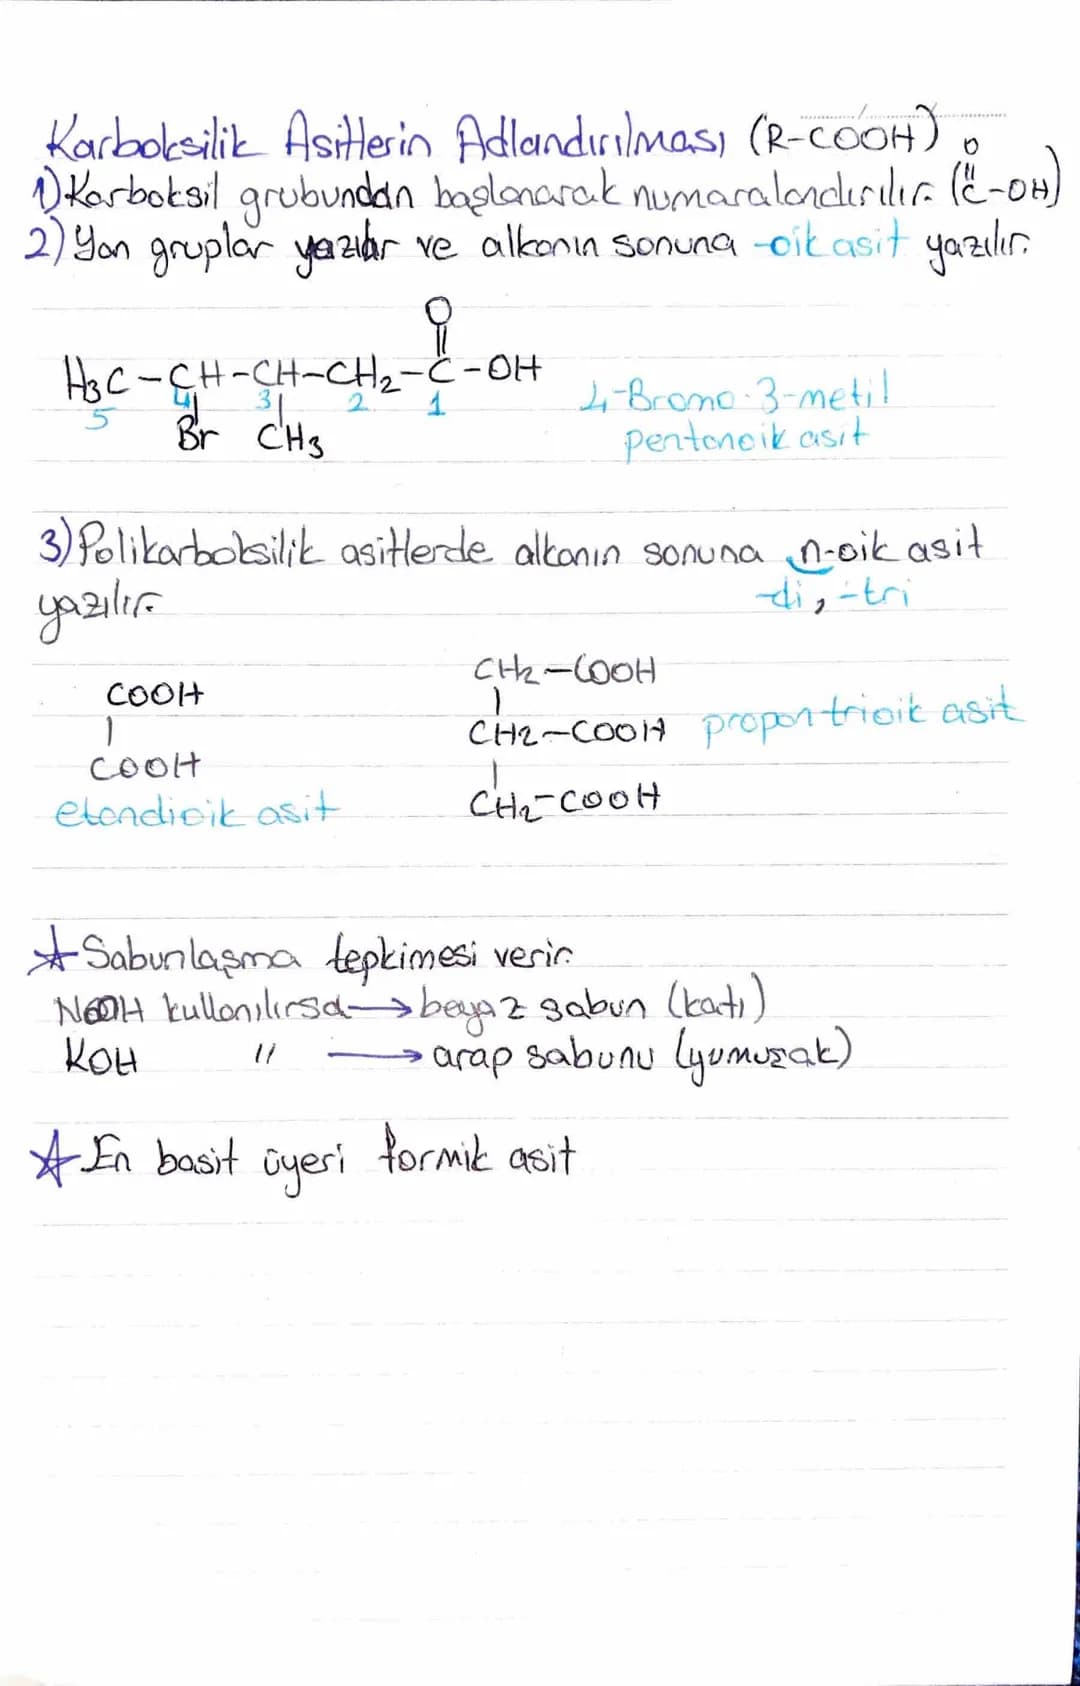 Karboksilik Asitlerin Adlandırılması (R-COOH)
O
1) Karboksil grubundan başlanarak numaralandırılır. (C-OH)
2) Yan gruplar yazılır ve alkanın sonuna -oik asit yazılır.
O
H3C-CH-CH-CH2-C-OH
5 4 3 2 1
Br CH3
4-Bromo-3-metil
pentanoik asit
3) Polikarboksilik asitlerde alkanın sonuna n-oik asit
yazılır.
-di, -tri
COOH
COOH
etandioik asit
CH2-COOH
CH2-COOH
CH2-COOH
propan trioik asit
☆ Sabunlaşma tepkimesi verir.
NaOH kullanılırsa → beyaz sabun (katı)
KOH " → arap sabunu (yumuşak)
☆ En basit üyeri formik asit